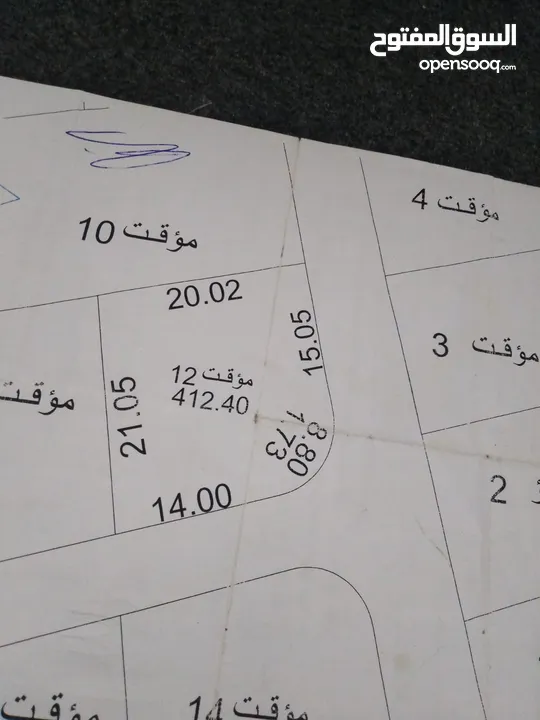 السوق المفتوح
opensooq.com
مؤقت 4
مؤقت 10
20.02
مؤقت 3
15.05
مؤقت 12
412.40
مؤقت
21.05
8.80
2
14.00
مؤقت 14
مؤقت